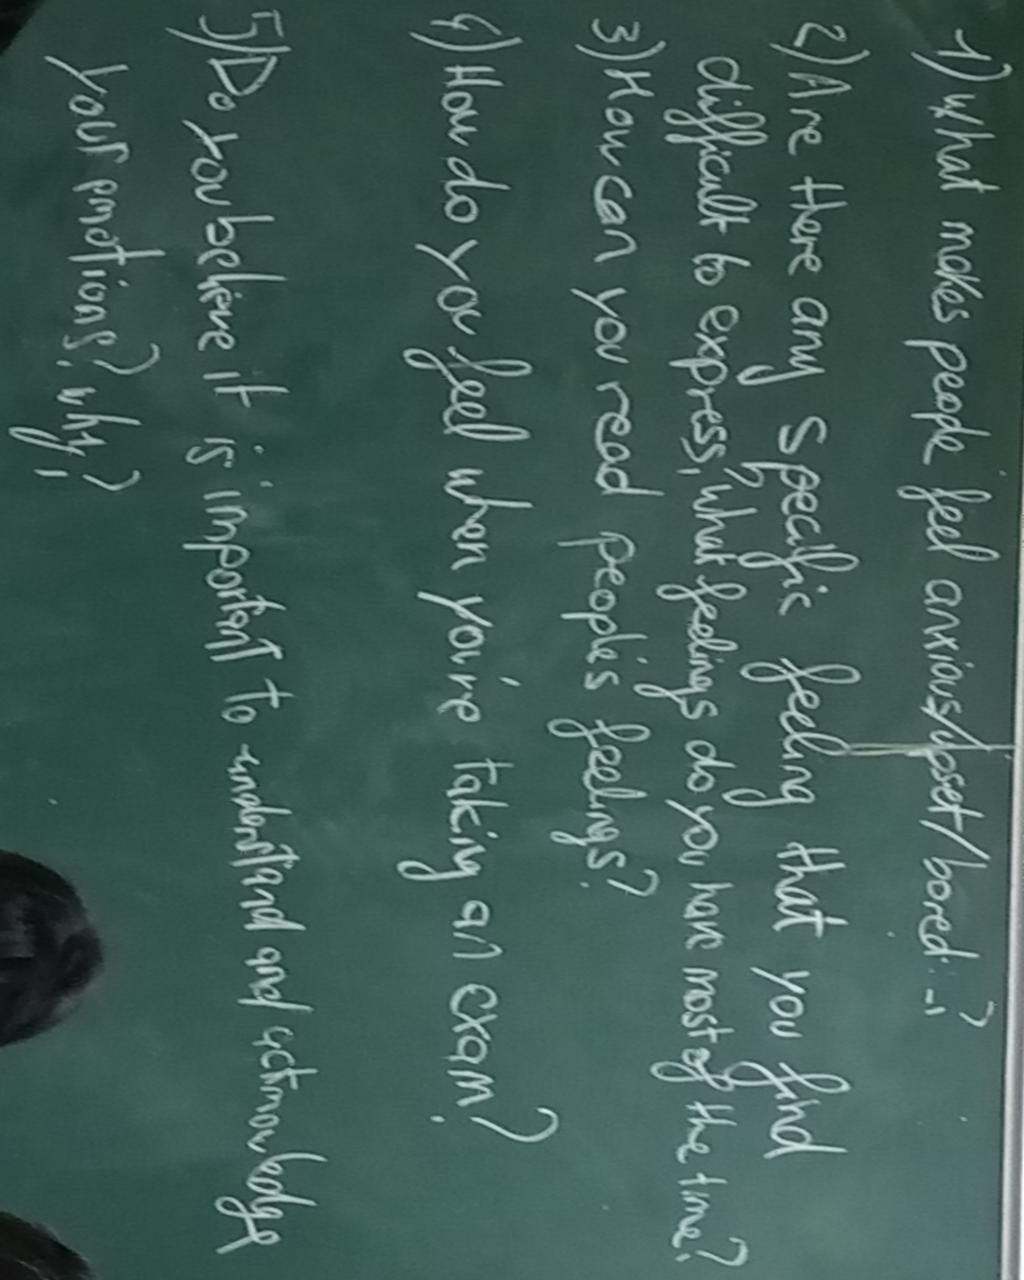 1) What makes people feel anxious/upset/bored..-?
2) Are there any specific feeling that you find
difficult to express?, what feelings do you have most of the time?
3) How can you read people's feelings?
4) How do you feel when you're taking an exam?
5) Do you believe it is important to understand and acknowledge
your emotions? why?